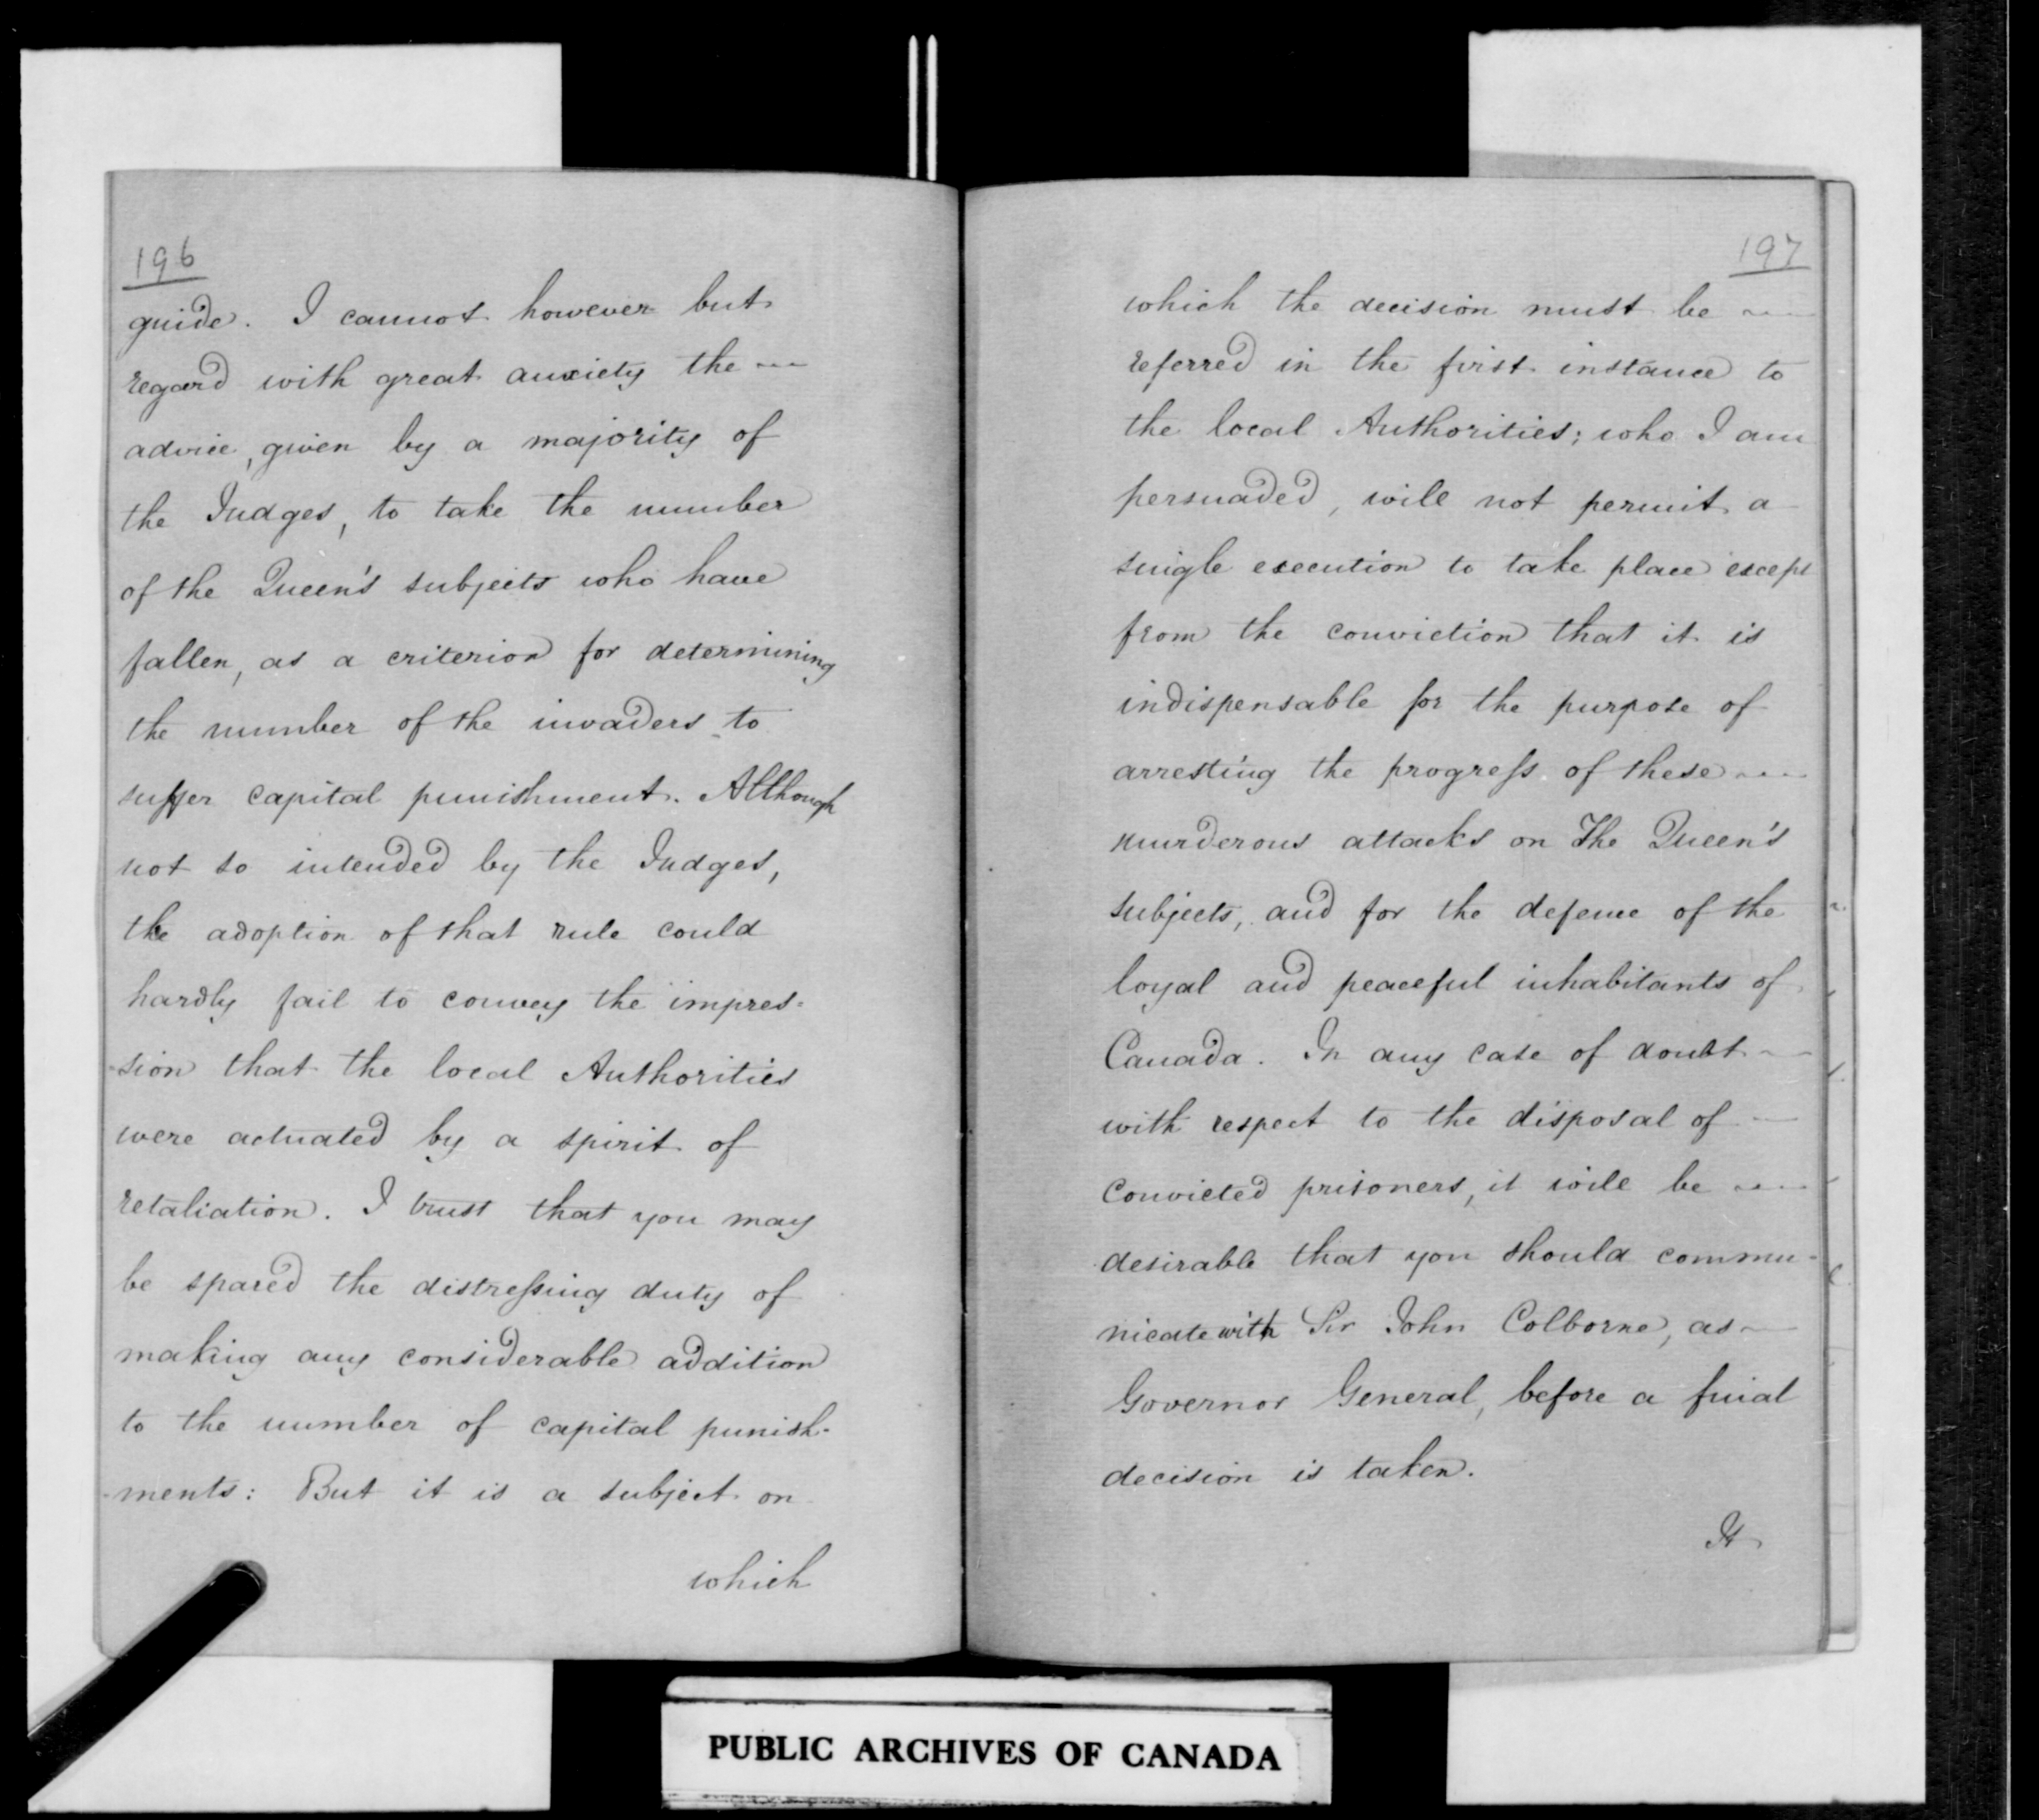 196
guide. I cannot however but
regard with great anxiety the
advice, given by a majority of
the Judges, to take the number
of the Queen's subjects who have
fallen, as a criterion for determining
the number of the invaders to
suffer capital punishment. Although
not so intended by the Judges,
the adoption of that rule could
hardly fail to convey the impres-
-sion that the local Authorities
were actuated by a spirit of
retaliation. I trust that you may
be spared the distressing duty of
making any considerable addition
to the number of capital punish-
-ments: But it is a subject on
which
197
which the decision must be
referred in the first instance to
the local Authorities; who I am
persuaded, will not permit a
single execution to take place except
from the conviction that it is
indispensable for the purpose of
arresting the progress of these
murderous attacks on The Queen's
subjects, and for the defence of the
loyal and peaceful inhabitants of
Canada. In any case of doubt
with respect to the disposal of
convicted prisoners, it will be
desirable that you should commu-
nicate with Sir John Colborne, as
Governor General, before a final
decision is taken.
It
PUBLIC ARCHIVES OF CANADA